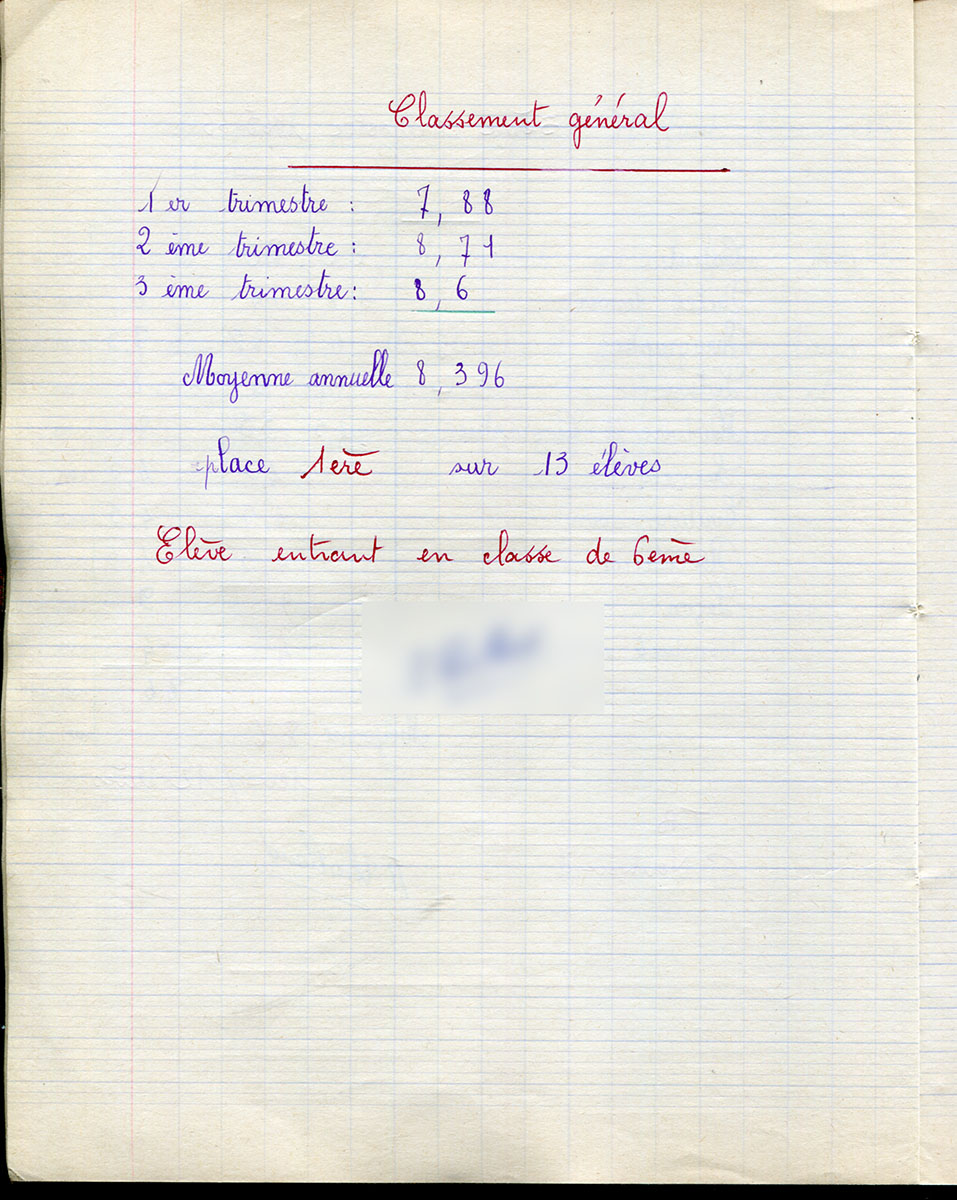 Classement général
1er trimestre : 7,88
2ème trimestre : 8,71
3ème trimestre : 8,6
Moyenne annuelle 8,396
place 1ère sur 13 élèves
Elève entrant en classe de 6ème